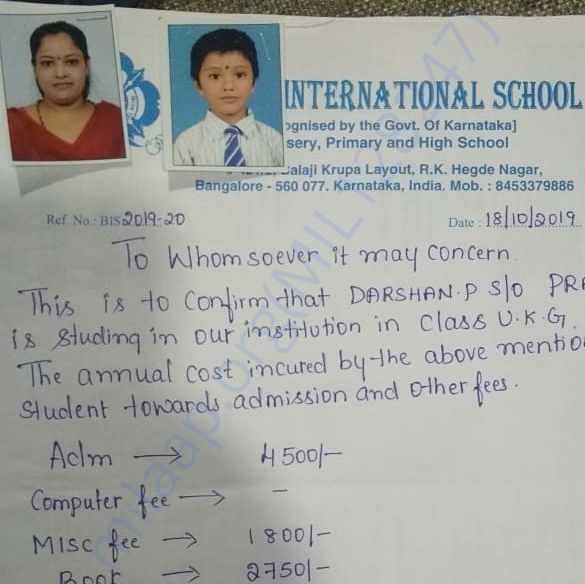 INTERNATIONAL SCHOOL
ognised by the Govt. Of Karnataka]
sery, Primary and High School
Balaji Krupa Layout, R.K. Hegde Nagar,
Bangalore - 560 077. Karnataka, India. Mob. : 8453379886
Ref. No.: BIS 2019-20 Date : 18/10/2019
To Whomsoever it may concern.
This is to confirm that DARSHAN.P S/O PRA
is studing in our instittution in class U.K.G.
The annual cost incured by the above mentio
student towards admission and other fees.
Adm → 4500/-
Computer fee → -
Misc fee → 1800/-
Book → 2750/-
milaap.org(MIL128247)